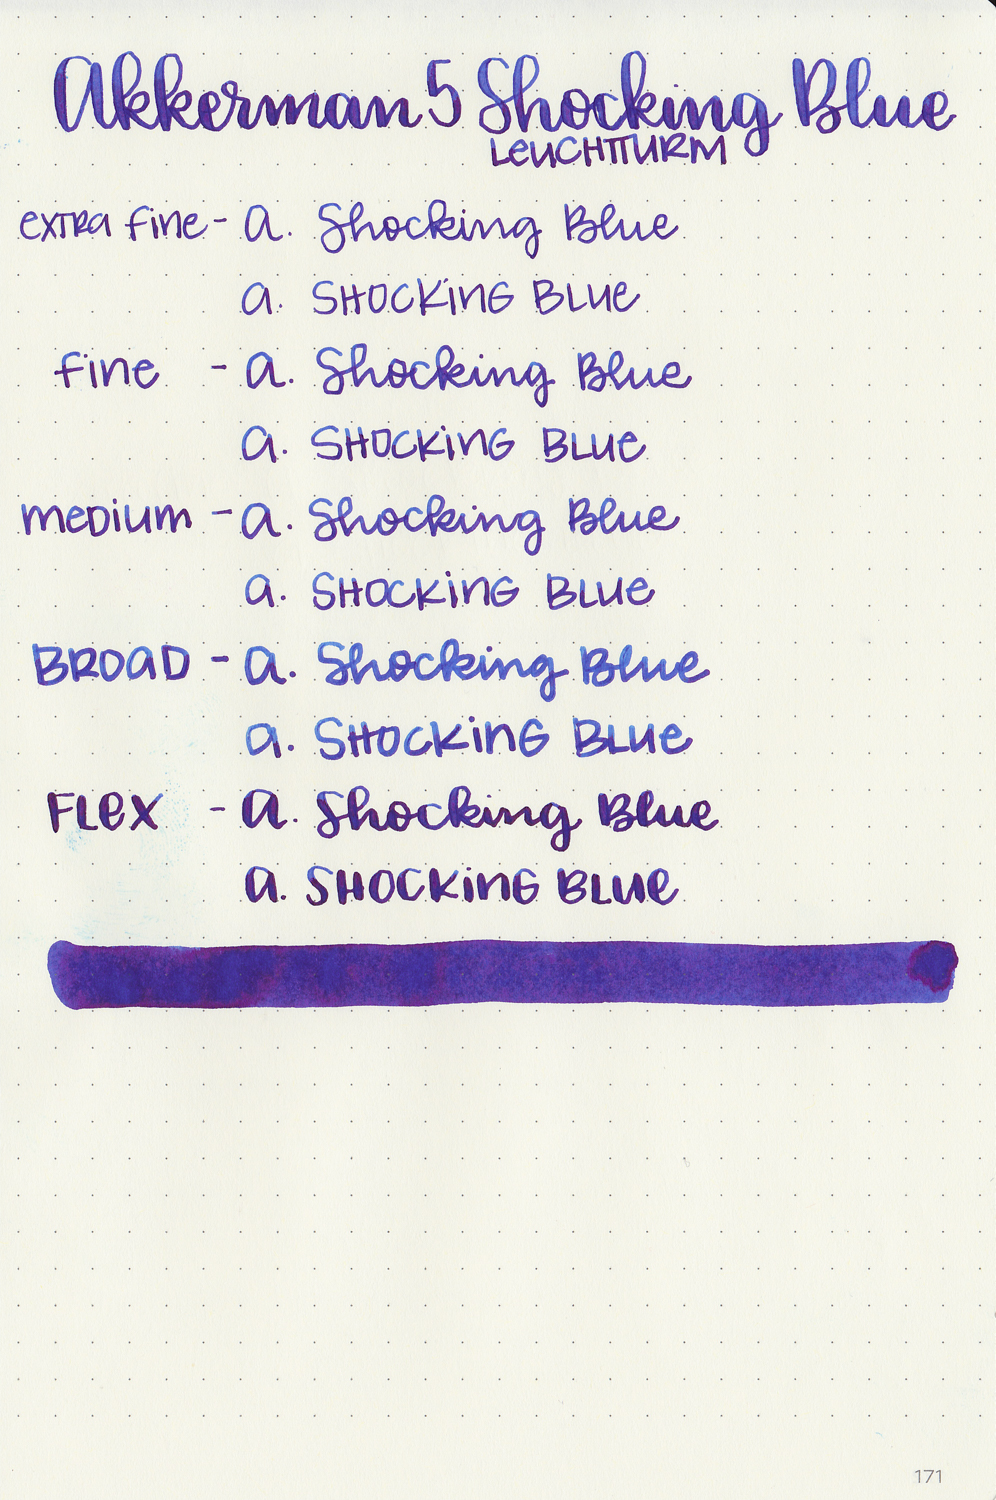 Akkerman 5 Shocking Blue
LEUCHTTURM
extra fine - a. Shocking Blue
a. SHOCKING BLUE
fine - a. Shocking Blue
a. SHOCKING BLUE
medium - a. Shocking Blue
a. SHOCKING BLUE
BROAD - a. Shocking Blue
a. SHOCKING BLUE
FLEX - a. Shocking Blue
a. SHOCKING BLUE
171